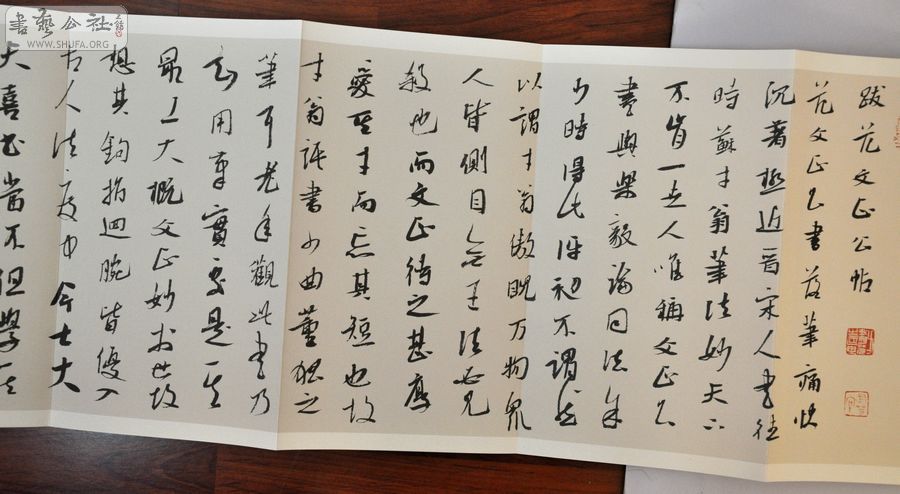 書藝公社
WWW.SHUFA.ORG
跋范文正公帖
范文正公書落筆痛快
沉著極近晉宋人書往
時蘇才翁筆法妙天下
不肯一世人唯稱文正公
書與樂毅論同法余
少時得此評初不謂然
以謂才翁傲睨万物眾
人皆側目無王法必見
殺也而文正待之甚厚
愛其才而忘其短也故
才翁評書少曲董狐之
筆耳老年觀此書乃
知用筆實處是其
最工大概文正妙於世故
想其鉤指迴腕皆優入
古人法度中今士大
夫喜書當不但學其